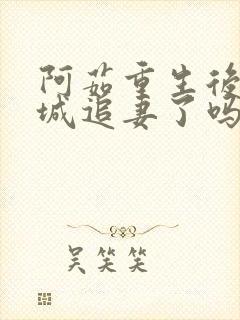 阿茹重生後
城追妻了吗
吴笑笑